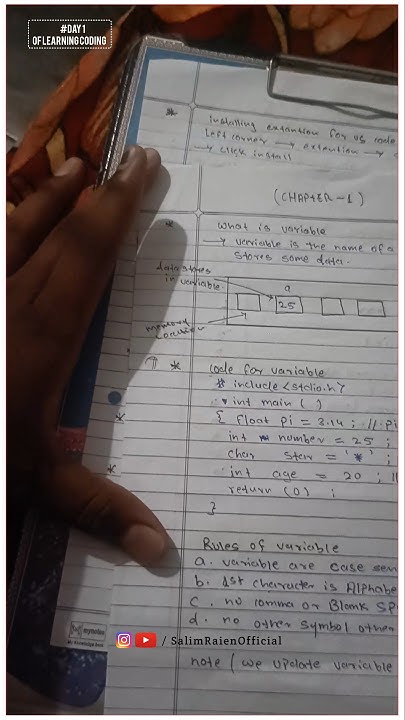 #DAY1
OF LEARNING CODING
* Installing extantion for vs code
Left corner → extention →
→ click install
(CHAPTER-1)
* What is variable
→ variable is the name of a
stores some data.
data stores
in variable
a
25
memory
location
* code for variable
# include <stdio.h>
int main ( )
{ float pi = 3.14 ; // Pi
int number = 25 ;
char star = '*' ;
int age = 20 ; //
return (0) ;
}
Rules of variable
a. variable are case sen
b. 1st character is Alphabe
c. no comma or Blank SP
d. no other symbol other
/ SalimRaienOfficial
note ( we update variable
My Knowledge Book